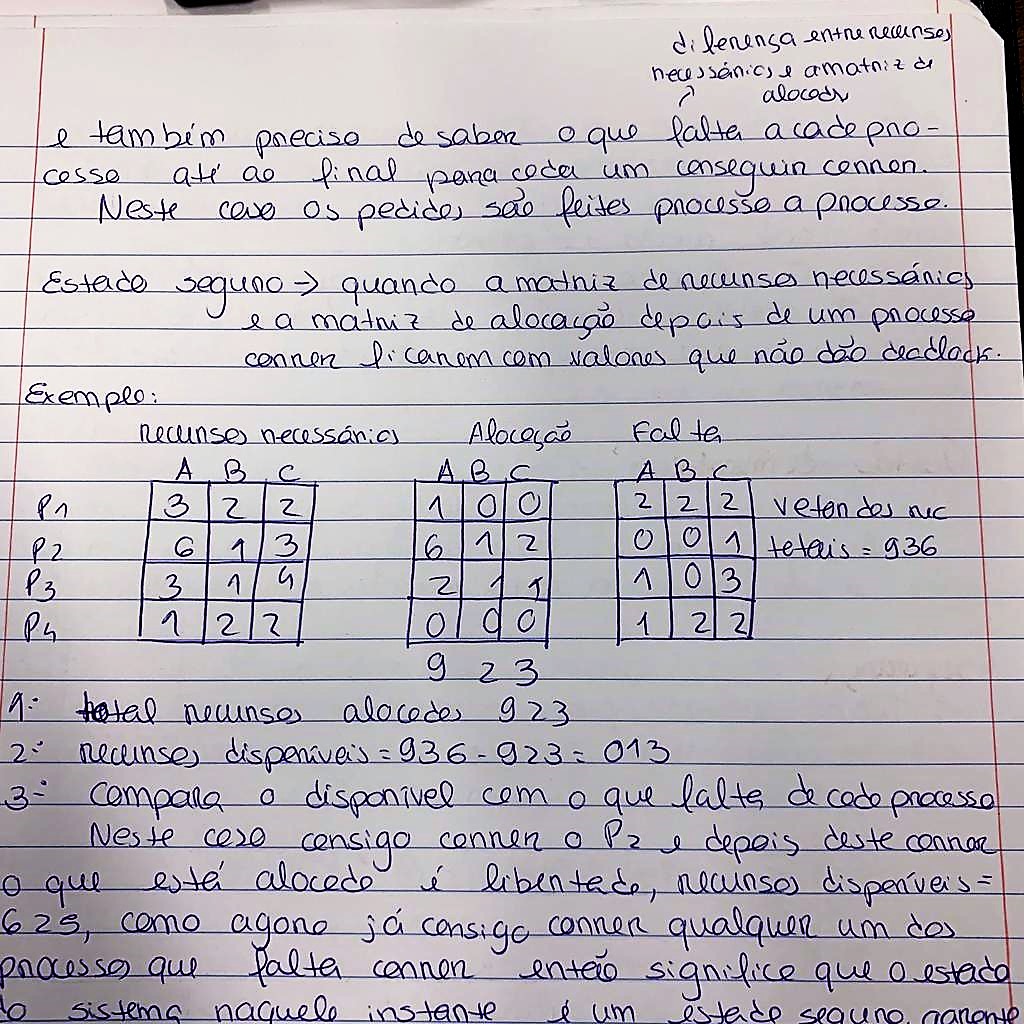 diferença entre recursos
necessários e a matriz de
alocados
e também preciso de saber o que falta a cada pro-
cesso até ao final para cada um conseguir correr.
Neste caso os pedidos são feitos processo a processo.
Estado seguro → quando a matriz de recursos necessários
e a matriz de alocação depois de um processo
correr ficarem com valores que não dão deadlock.
Exemplo:
recursos necessários Alocação Falta
A B C A B C A B C
P1 3 2 2 1 0 0 2 2 2 vetor dos rec
P2 6 1 3 6 1 2 0 0 1 totais = 936
P3 3 1 4 2 1 1 1 0 3
P4 1 2 2 0 0 0 1 2 2
9 2 3
1º: total recursos alocados 923
2º: recursos disponíveis = 936 - 923 = 013
3º: compara o disponível com o que falta de cada processo
Neste caso consigo correr o P2 e depois deste correr
o que está alocado é libertado, recursos disponíveis =
625, como agora já consigo correr qualquer um dos
processos que falta correr então significa que o estado
do sistema naquele instante é um estado seguro, garante